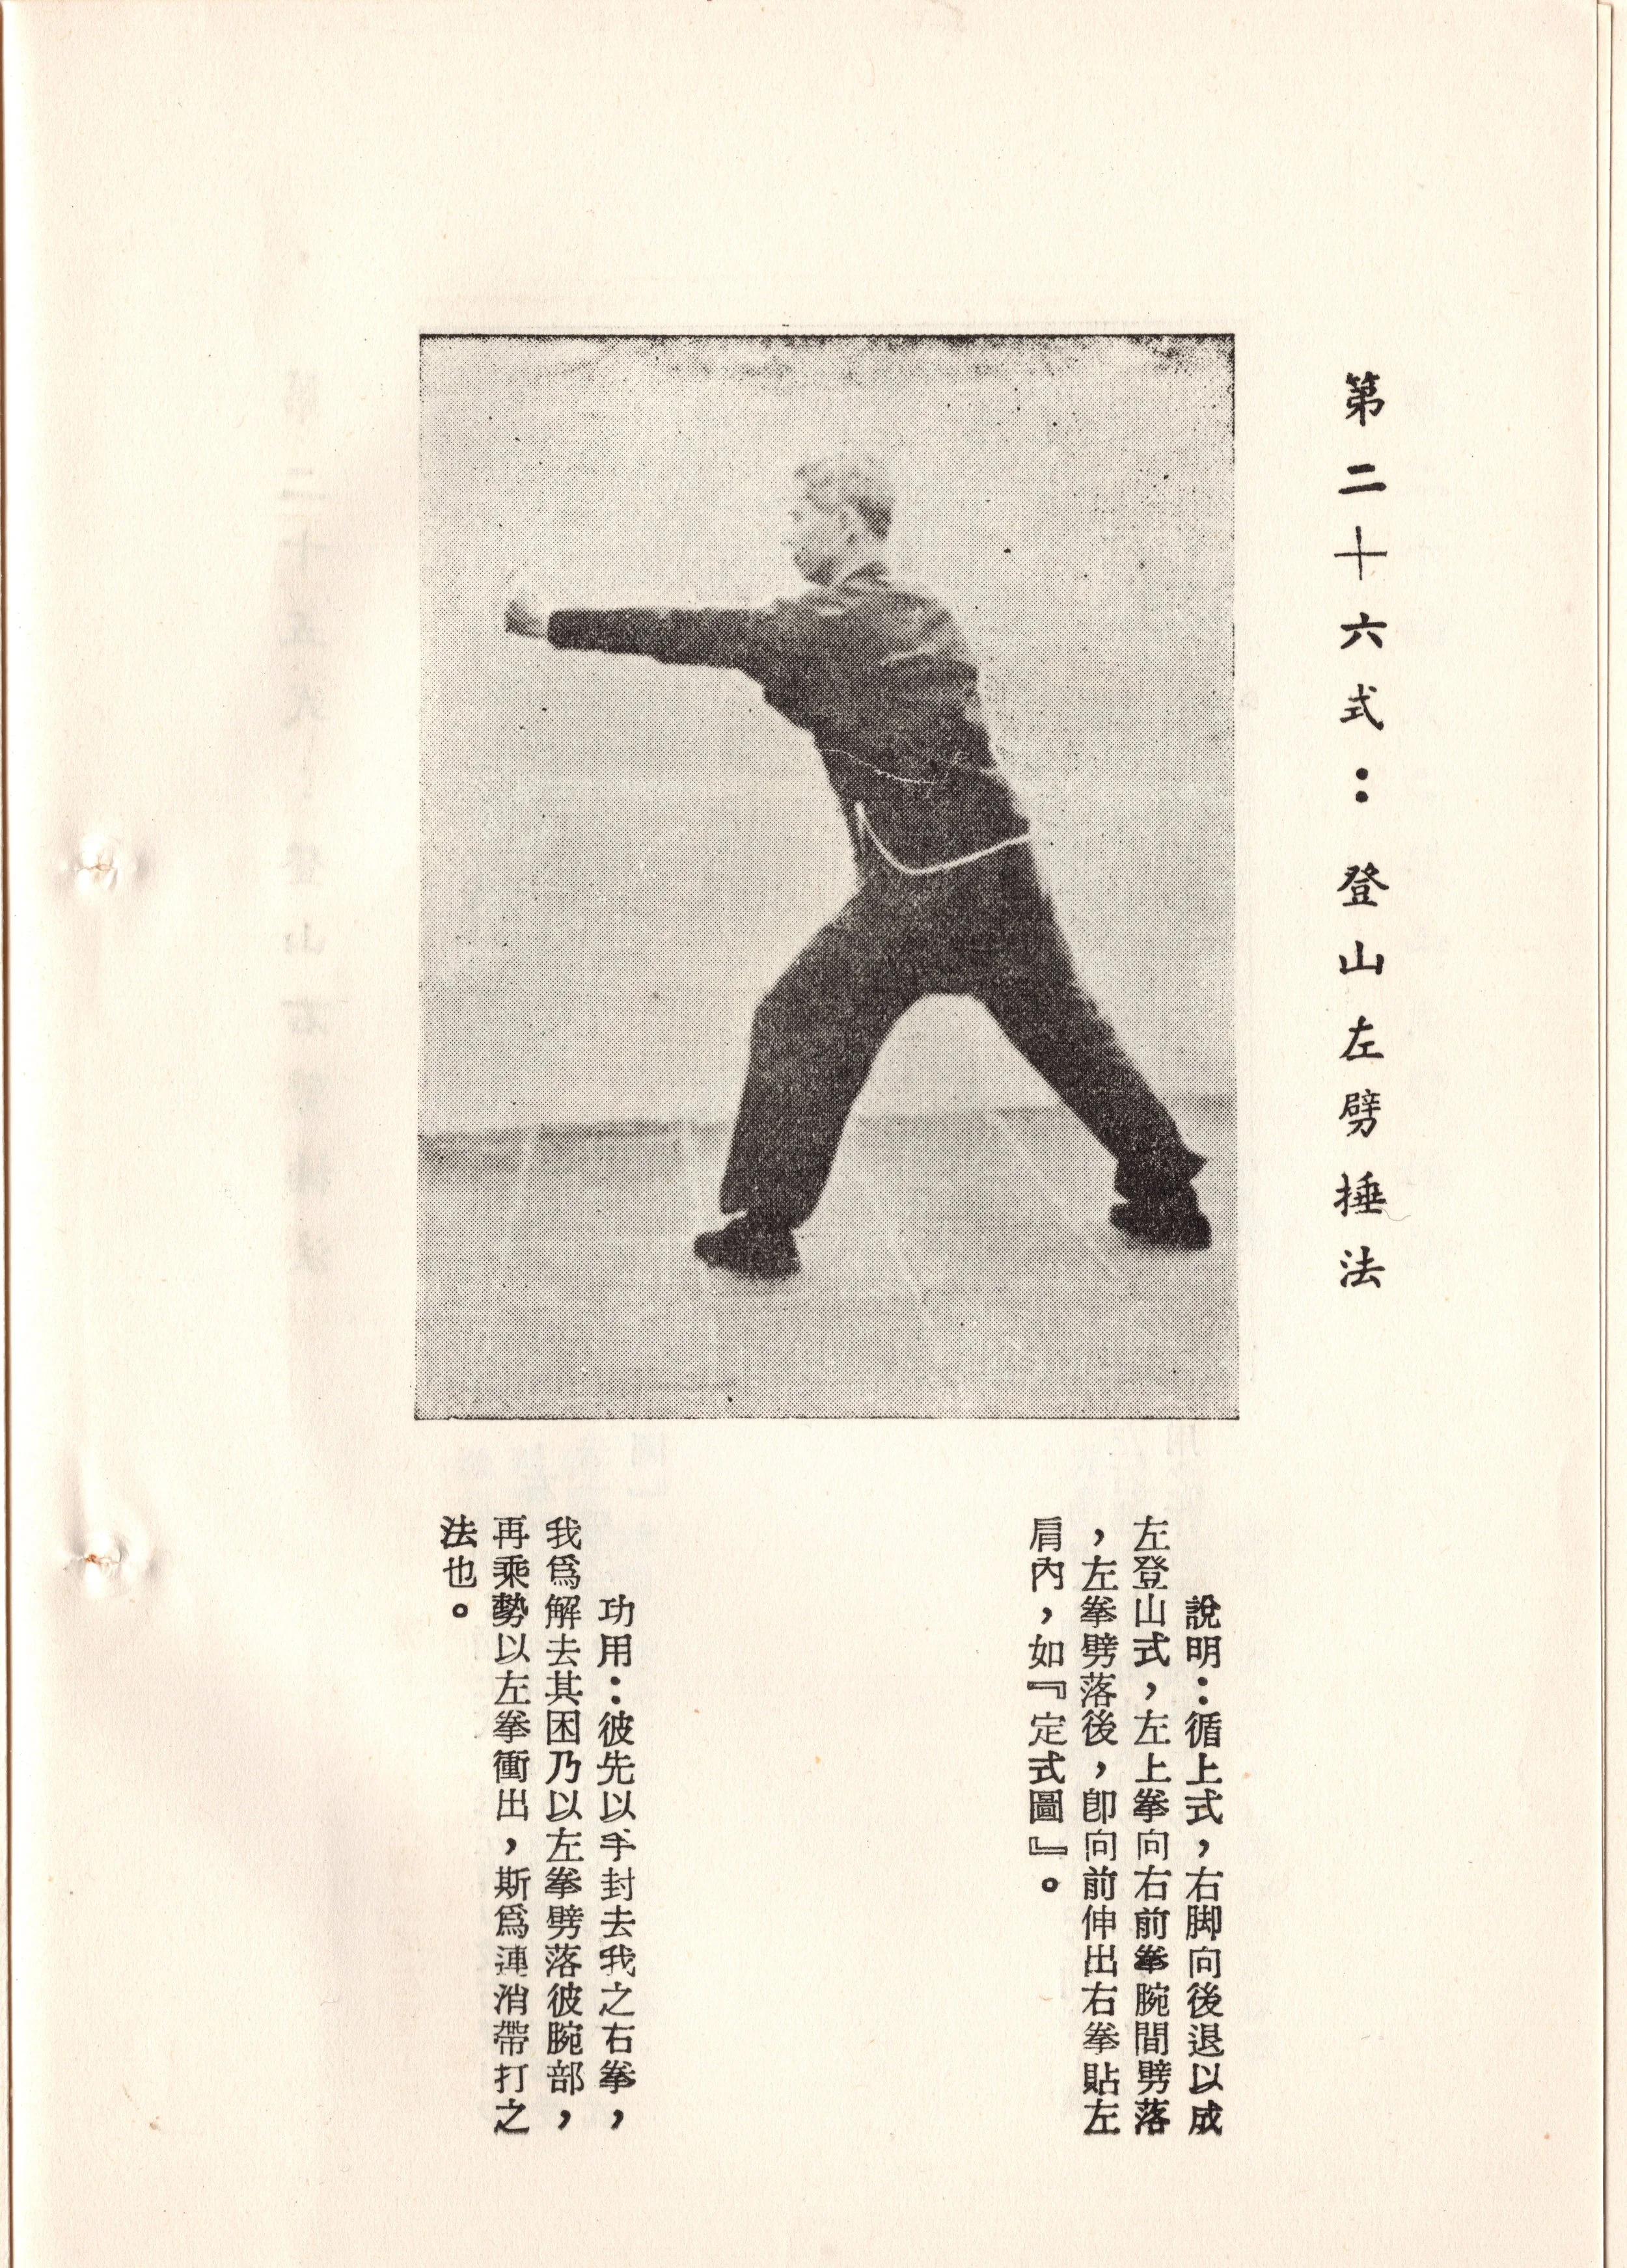 第二十六式：登山左劈捶法
說明：循上式，右脚向後退以成
左登山式，左上拳向右前拳腕間劈落
，左拳劈落後，卽向前伸出右拳貼左
肩內，如『定式圖』。
功用：彼先以手封去我之右拳，
我爲解去其困乃以左拳劈落彼腕部，
再乘勢以左拳衝出，斯爲連消帶打之
法也。